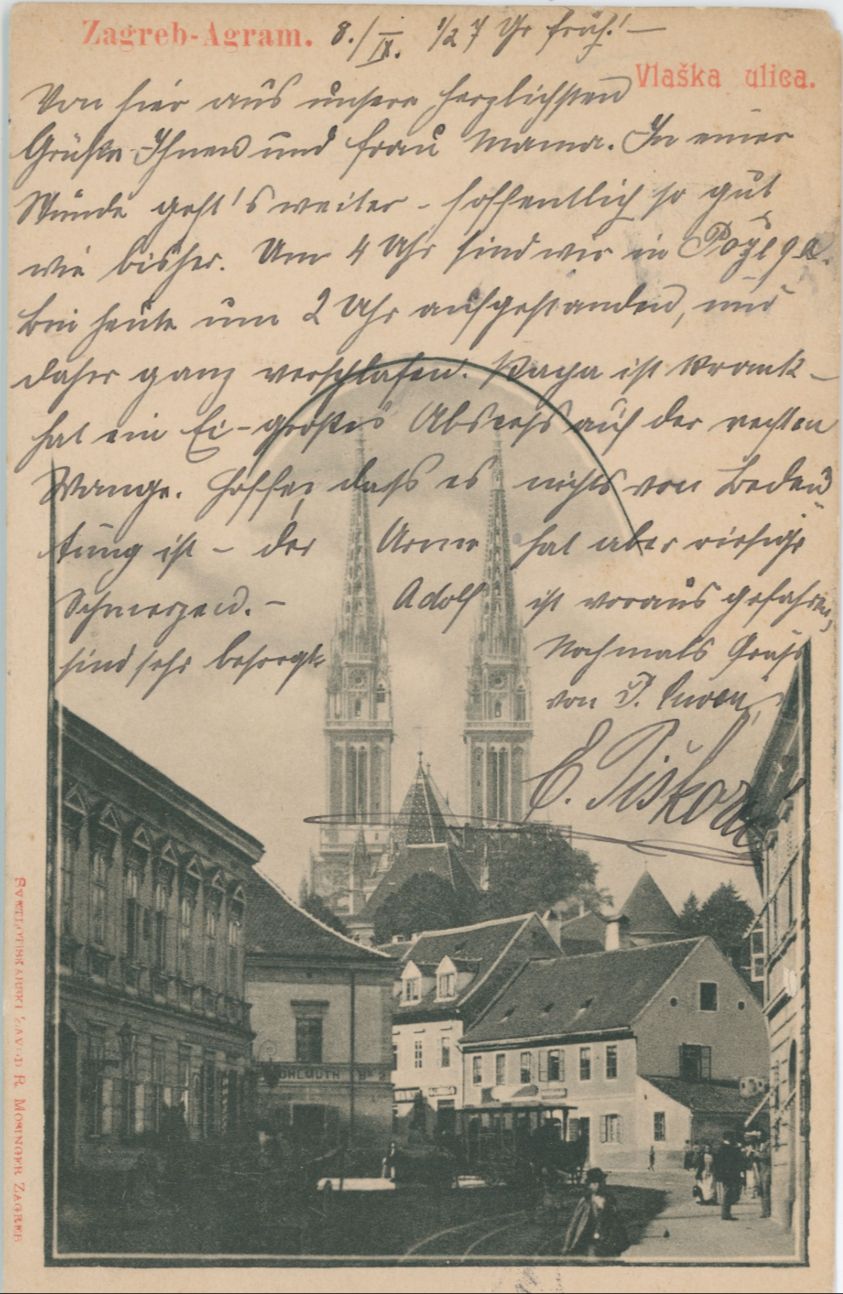 Zagreb-Agram. 8./IX. 1/2 7 Uhr früh! –
Vlaška ulica.
Von hier aus unsere herzlichsten
Grüße Ihnen und Frau Mama. In einer
Stunde geht's weiter – hoffentlich so gut
wie bisher. Um 4 Uhr sind wir in Požega.
Bin heute um 2 Uhr aufgestanden, und
daher ganz verschlafen. Papa ist krank –
hat ein Ei-großes Abscess auf der rechten
Wange. Hoffe, daß es nichts von Bedeu
tung ist – der Arme hat aber riesige
Schmerzen. – Adolf ist vorausgefahren,
sind sehr besorgt. Nochmals Grüße
von
E. Piškorz
OHLMUTH
SVIETLOTISKARSKI ZAVOD R. MOSINGER ZAGREB